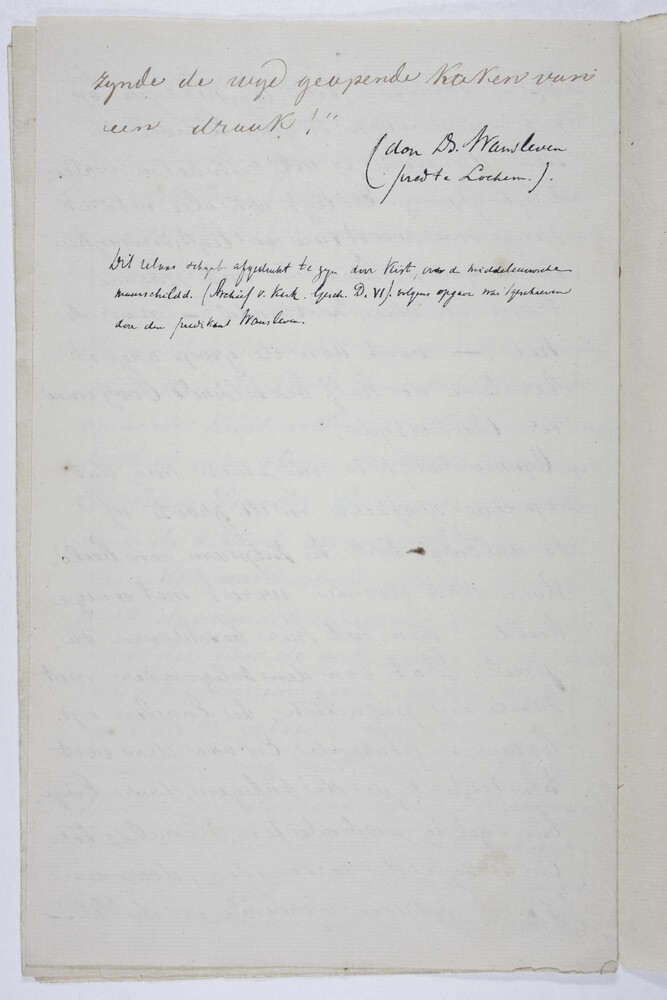 zynde de wyd geopende kaken van
een draak!"
(door Ds. Wansleven
pred te Lochem.).
Dit relaas schynt afgedrukt te zyn door Kist, over de middeleeuwsche
muurschildd. (Archief v. Kerk. Gesch. D. VI). volgens opgave was 't geschreven
door den predikant Wansleven.